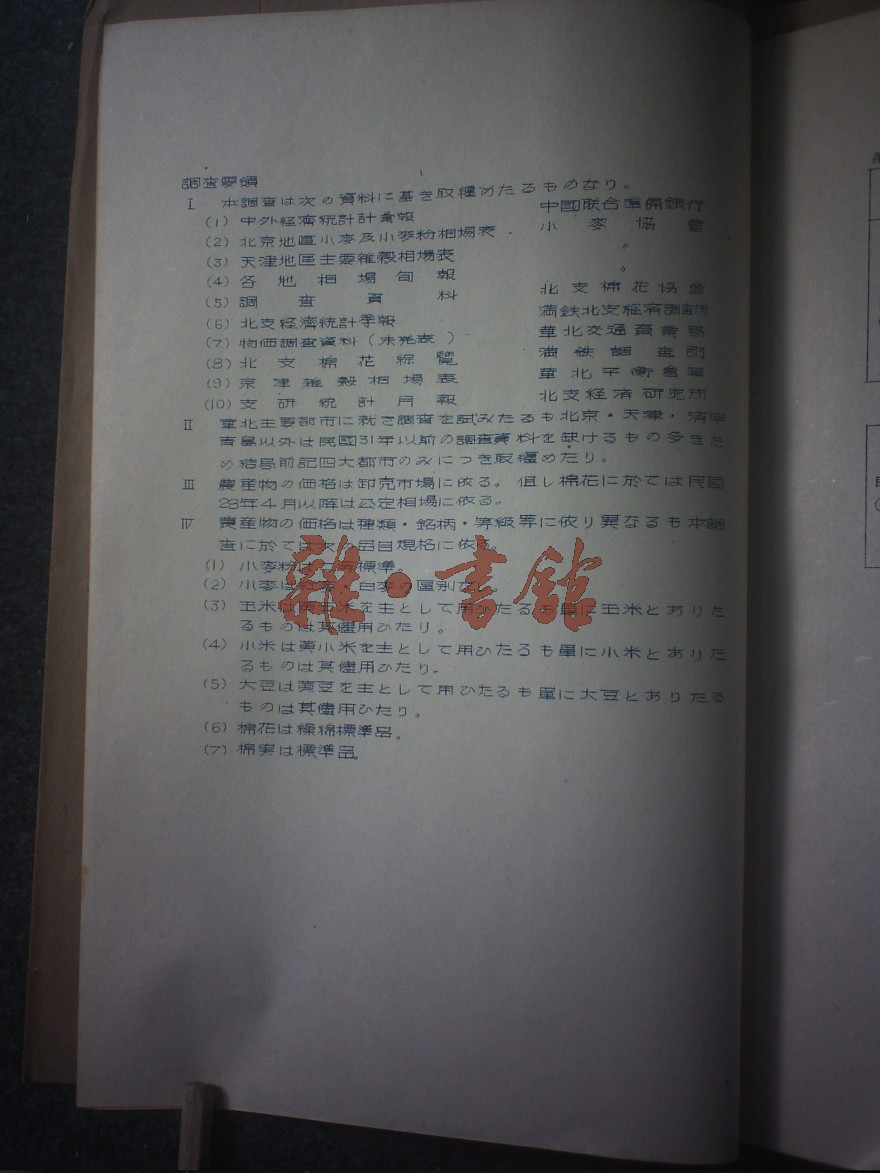 調査要領
Ⅰ 本調査は次の資料に基き取纒めたるものなり。
(1) 中外経済統計彙報 中國联合準備銀行
(2) 北京地區小麥及小麥粉相場表 小麥協會
(3) 天津地區主要雜穀相場表 〃
(4) 各地相場旬報 〃
(5) 調査資料 北支棉花協會
(6) 北支経済統計季報 満鉄北支経済調査所
(7) 物価調査資料(未発表) 華北交通資業局
(8) 北支棉花綜覽 満鉄調査部
(9) 京津雑穀相場表 華北平衡倉庫
(10) 支研統計月報 北支経済研究所
Ⅱ 華北主要都市に就き調査を試みたるも北京・天津・済南
青島以外は民國31年以前の調査資料を缺けるもの多きた
め結局前記四大都市のみにつき取纒めたり。
Ⅲ 農産物の価格は卸売市場に依る。但し棉花に於ては民國
28年4月以降は公定相場に依る。
Ⅳ 農産物の価格は種類・銘柄・等級等に依り異なるも本調
査に於ては次の品目規格に依る。
(1) 小麥粉は 標準。
(2) 小麥は ・白麥の區別なし。
(3) 玉米は黄玉米を主として用ひたるも單に玉米とありた
るものは其儘用ひたり。
(4) 小米は黄小米を主として用ひたるも單に小米とありた
るものは其儘用ひたり。
(5) 大豆は黄豆を主として用ひたるも單に大豆とありたる
ものは其儘用ひたり。
(6) 棉花は繰綿標準品。
(7) 棉実は標準品。
雜・書館